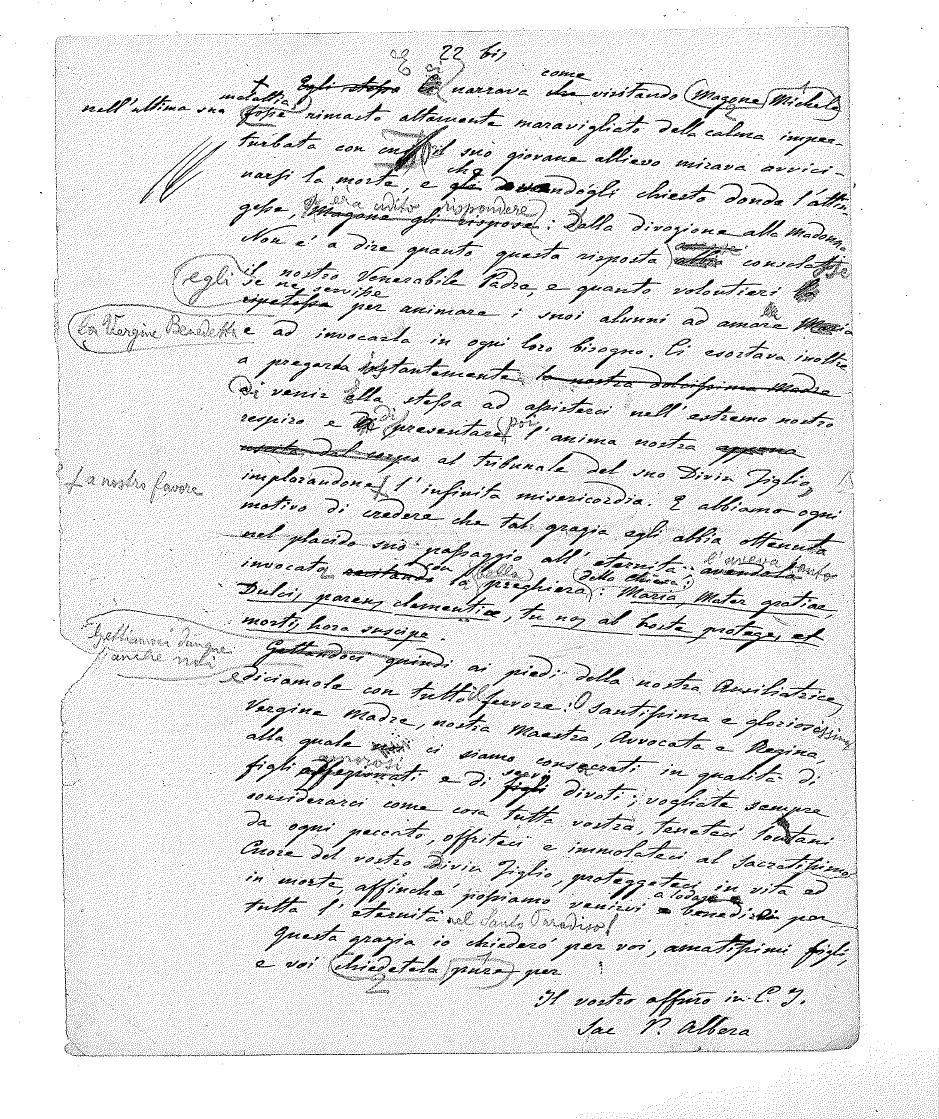 22 bis
E come
+ Egli stesso ci narrava che visitando Magone Michele
nell'ultima sua malattia fosse rimasto altamente maravigliato della calma imper-
turbata con cui il suo giovane allievo mirava avvici-
narsi la morte, e che avendogli chiesto donde l'attin-
gesse, Magone gli rispose: Dalla divozione alla Madonna
era udito rispondere
Non è a dire quanto questa risposta consolasse
egli il nostro Venerabile Padre, e quanto volontieri
se ne servisse
ripetesse per animare i suoi alunni ad amare Maria
la Vergine Benedetta e ad invocarla in ogni loro bisogno. Ci esortava inoltre
a pregarla instantemente la nostra dolcissima Madre
di venir Ella stessa ad assisterci nell'estremo nostro
respiro e di presentare poi l'anima nostra appena
uscita dal corpo al tribunale del suo Divin Figlio,
a nostro favore
implorandone l'infinita misericordia. E abbiamo ogni
motivo di credere che tal grazia egli abbia ottenuta
nel placido suo passaggio all'eternità: avendola
l'aveva tanto
invocata recitando con la bella preghiera della Chiesa: Maria, Mater gratiae,
Dulcis parens clementiae, tu nos ab hoste protege, et
mortis hora suscipe.
Gettiamoci dunque
anche noi
Gettandoci quindi ai piedi della nostra Ausiliatrice,
e diciamole con tutto il fervore: O santissima e gloriosissima
Vergine Madre, nostra Maestra, Avvocata e Regina,
alla quale noi ci siamo consecrati in qualità di
amorosi servi
figli affezionati e di figli divoti; vogliate sempre
considerarci come cosa tutta vostra, teneteci lontani
da ogni peccato, offriteci e immolateci al Sacratissimo
Cuore del vostro Divin Figlio, proteggeteci in vita ed
in morte, affinchè possiamo venirvi a lodare e benedire per
tutta l'eternità nel Santo Paradiso!
Questa grazia io chiederò per voi, amatissimi figli,
e voi chiedetela pure per
2
Il vostro affmo in C. J.
Sac P. Albera